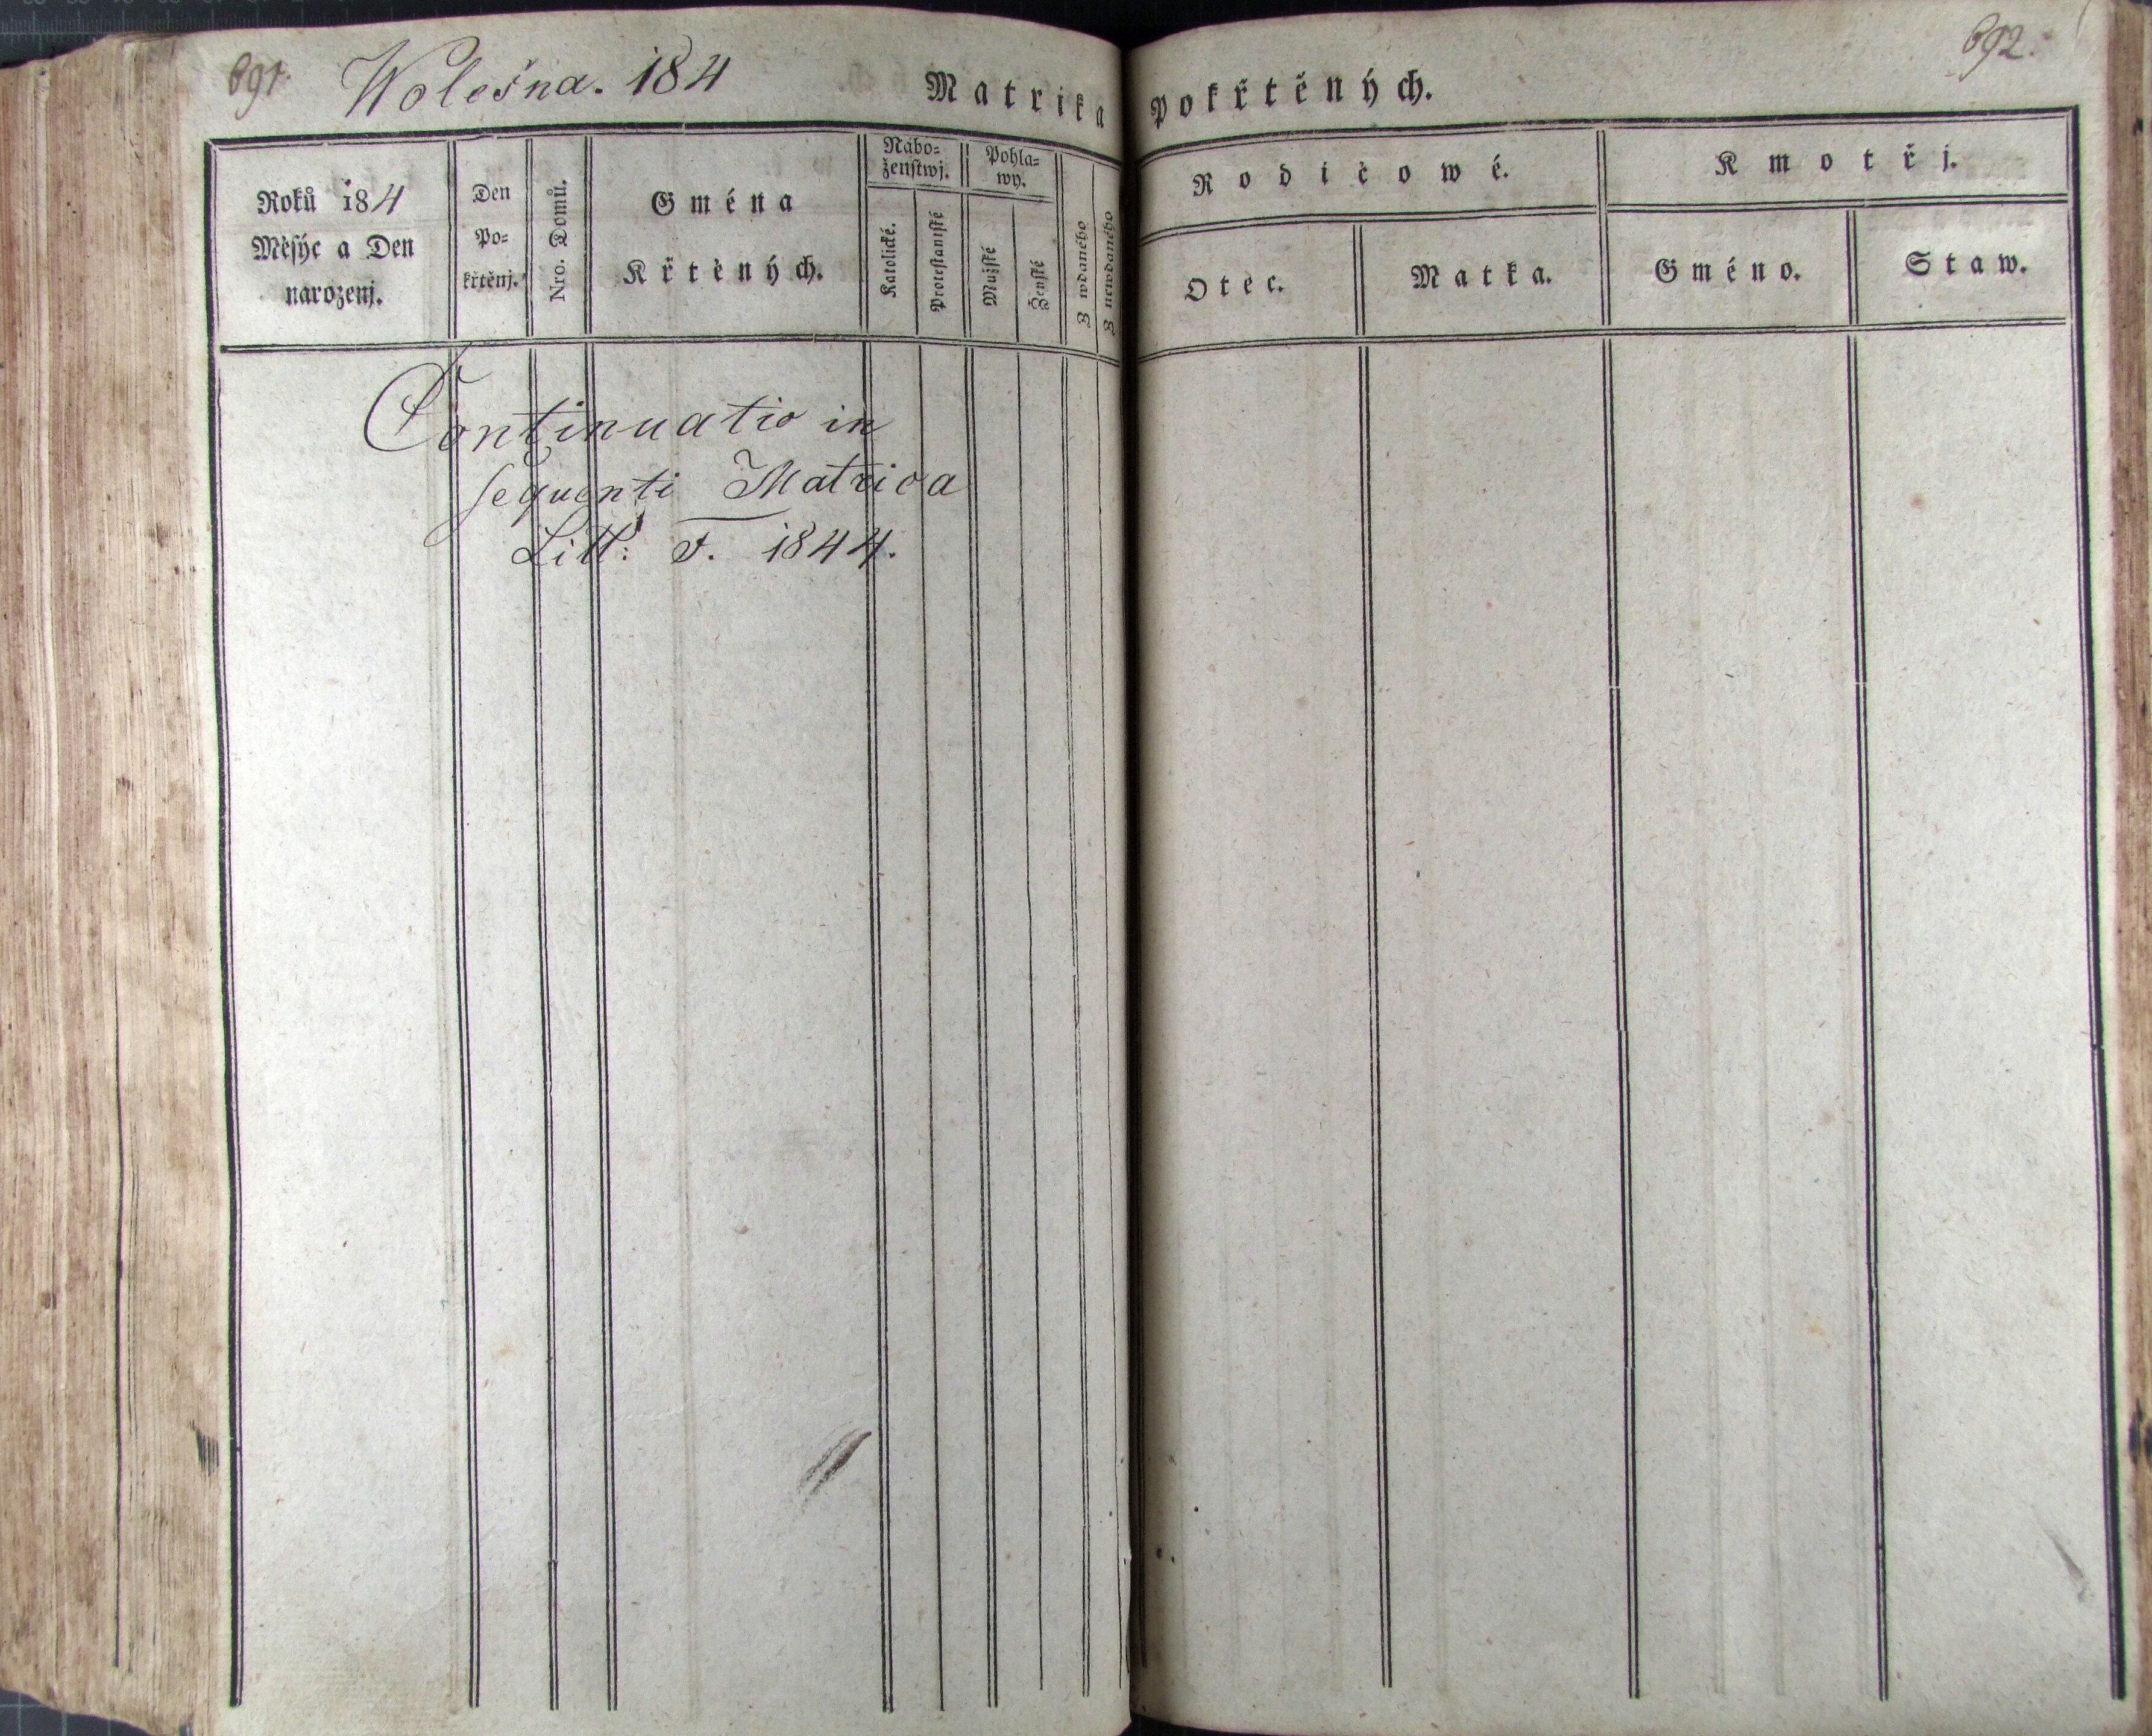 691.
Wolešna. 184
Matrika pokřtěných.
692.
Roků 184
Měsýc a Den
narozenj.
Den
Po=
křtěnj.
Nro. Domů.
Gména
Křtěných.
Nábo=
ženstwj.
Katolické.
Protestantské
Pohla=
wy.
Mužské
Ženské
Z wdaného
Z newdaného
Rodičowé.
Otec.
Matka.
Kmotřj.
Gméno.
Staw.
Continuatio in
sequenti Matrica
Litt: F. 1844.